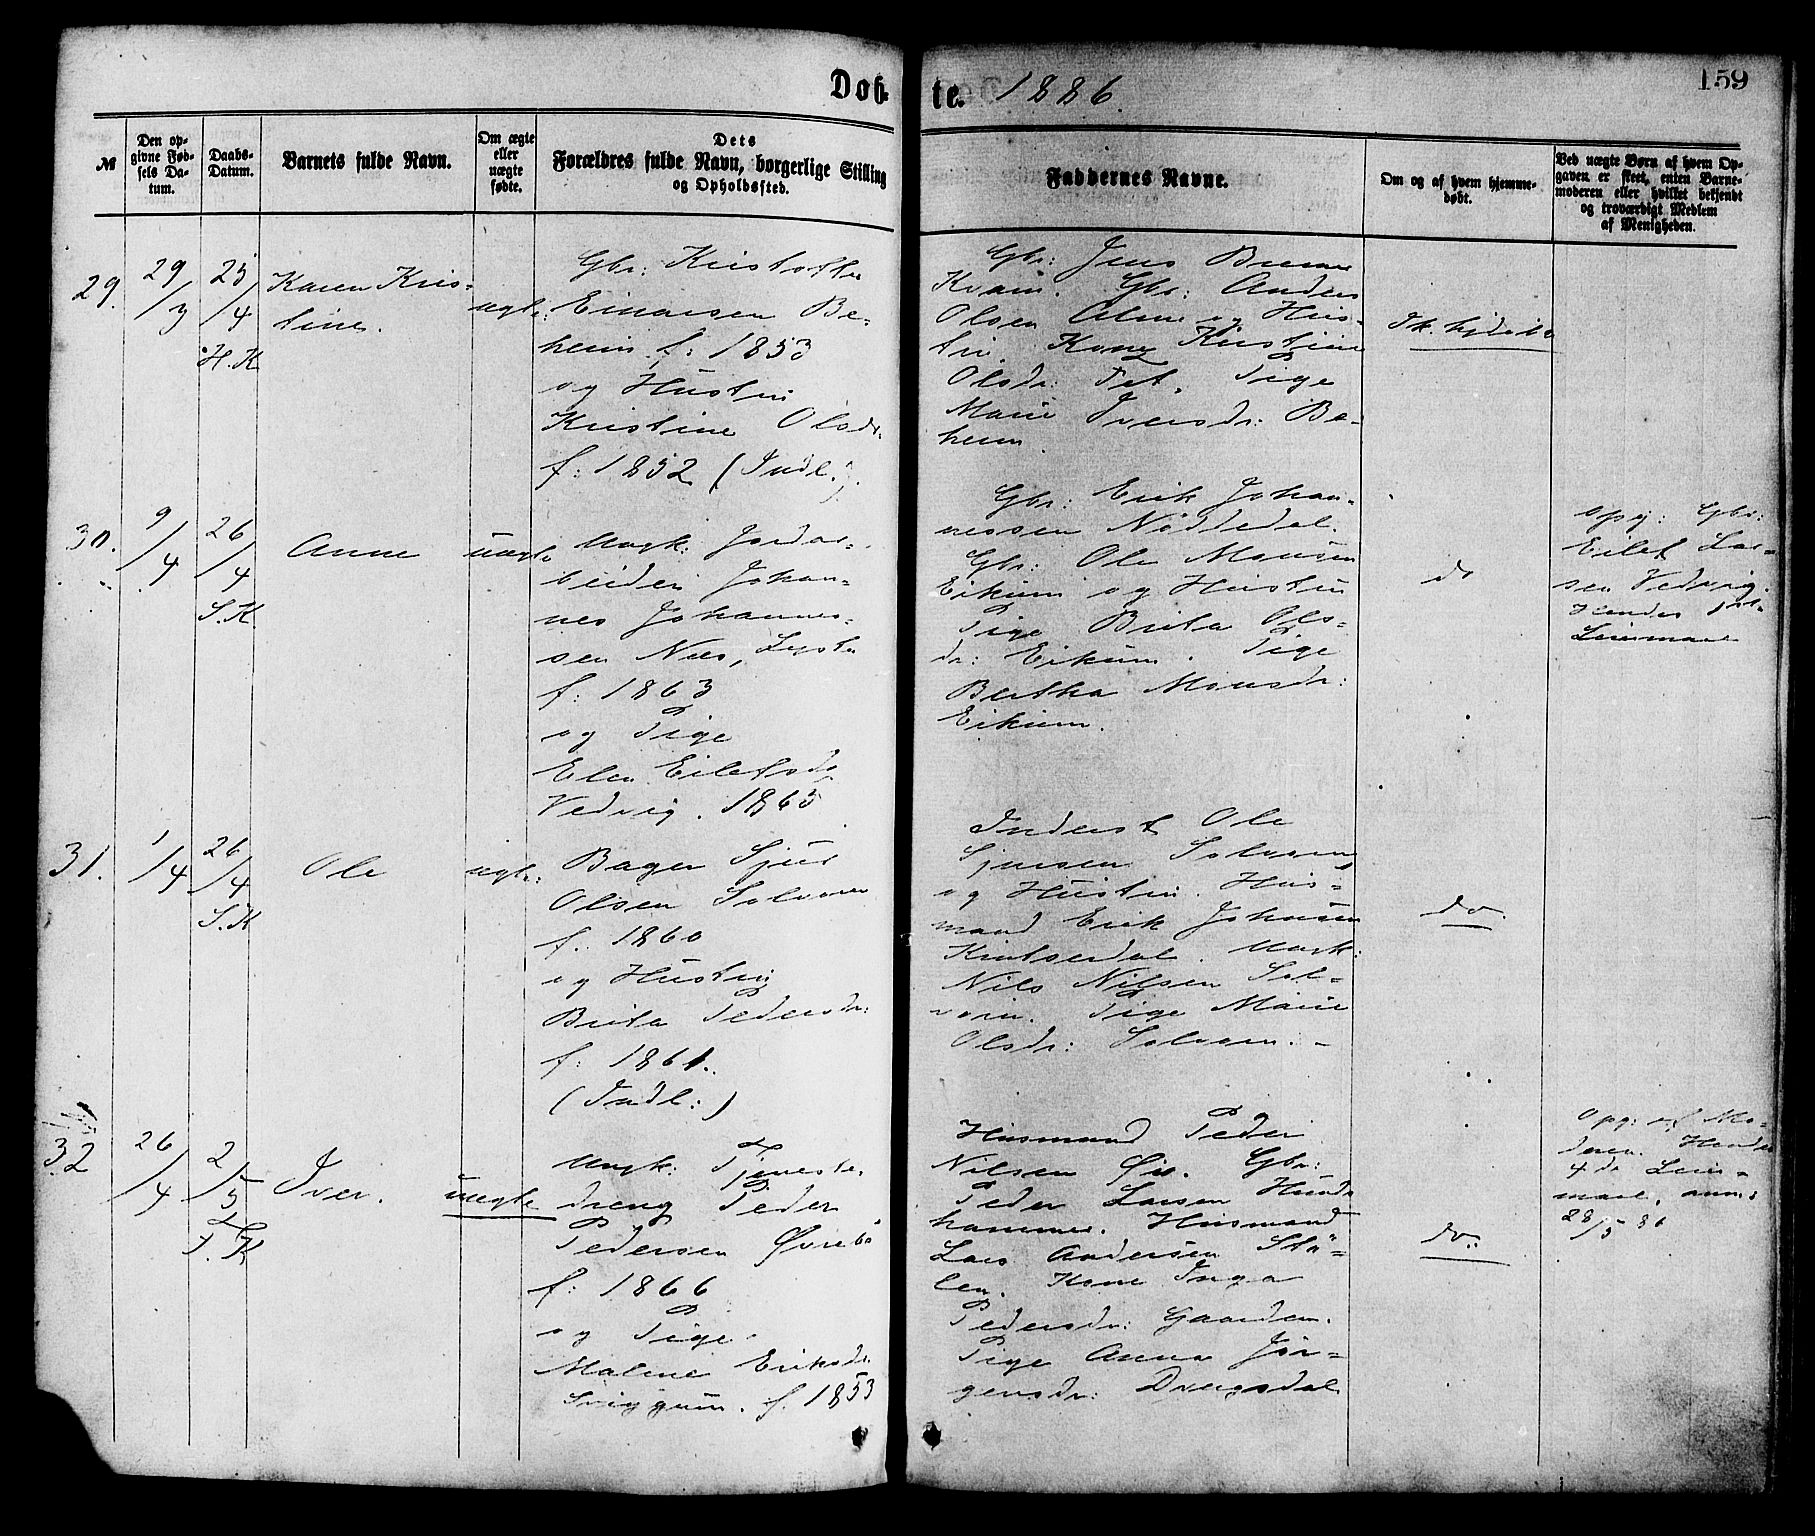 Døb-
te. 1886.
159
№
Den op-
givne Fød-
sels Da-
tum.
Daabs-
Datum.
Barnets fulde Navn.
Om ægte
eller
uægte
fødte.
Dets
Forældres fulde Navn, borgerlige Stilling
og Opholdssted.
Faddernes Navne.
Om og af hvem hjemme-
døbt.
Ved uægte Børn af hvem Op-
gaven er skeet, enten Barne-
moderen eller hvilket bekjendt
og troværdigt Medlem
af Menigheden.
29.
29/3
25/4
H.K
Karen Kris-
tine.
ægte:
Gbr: Kristoffer
Einarsen Be-
heim f: 1853
og Hustru
Kristine Olsdr:
f: 1852 (Indl.).
Gbr: Jens
Kvam. Gbr: Anders
Olsen Alme og Hus-
tru. Kone Kristine
Olsdr: Fet. Pige
Marie Iversdr: Be-
heim
30.
9/4
26/4
S.K
Anne
uægte
Ungk: Jordar-
beider Johan-
nes Johannes-
sen Næs, Lyster
f: 1863
og Pige
Elen Eilefsdr
Vedvig. 1865
Gbr: Erik Johan-
nessen Nøddedal.
Gbr: Ole Monsen
Eikum og Hustru
Pige Brita Ols-
dr: Eikum. Pige
Bertha Monsdr:
Eikum.
do
opg: Gbr:
Eilef Lar-
sen Vedvig.
Hendes 1ste
Leiermaal
31.
1/4
26/4
S.K
Ole
ægte:
Bager Sjur
Olsen Solvorn
f. 1860
og Hustru
Brita Pedersdr:
f: 1861.
(Indl:)
Inderst Ole
Sjursen Solvorn
og Hustru. Hus-
mand Erik Johnsen
Kintserdal. Ungk:
Nils Nilsen Sol-
vorn. Pige Marie
Olsdr: Solvorn. -
do.
32
26/4
2/5
F.K
Iver.
uægte
Ungk: Tjeneste-
dreng Peder
Pedersen Øvrebø
f: 1866
og Pige
Malene Eriksdr.
Sviggum. f. 1853
Husmand Peder
Nilsen Øie. Gbr:
Peder Larsen Hunds
hammer. Husmand
Lars Andersen Stø-
len. Kone Inga
Pedersdr: Gaarden.
Pige Anna Jør-
gensdr: Drægsdal
do:
Opg: af Mo-
deren. Hendes
4de Leier-
maal, anm:
28/5 86